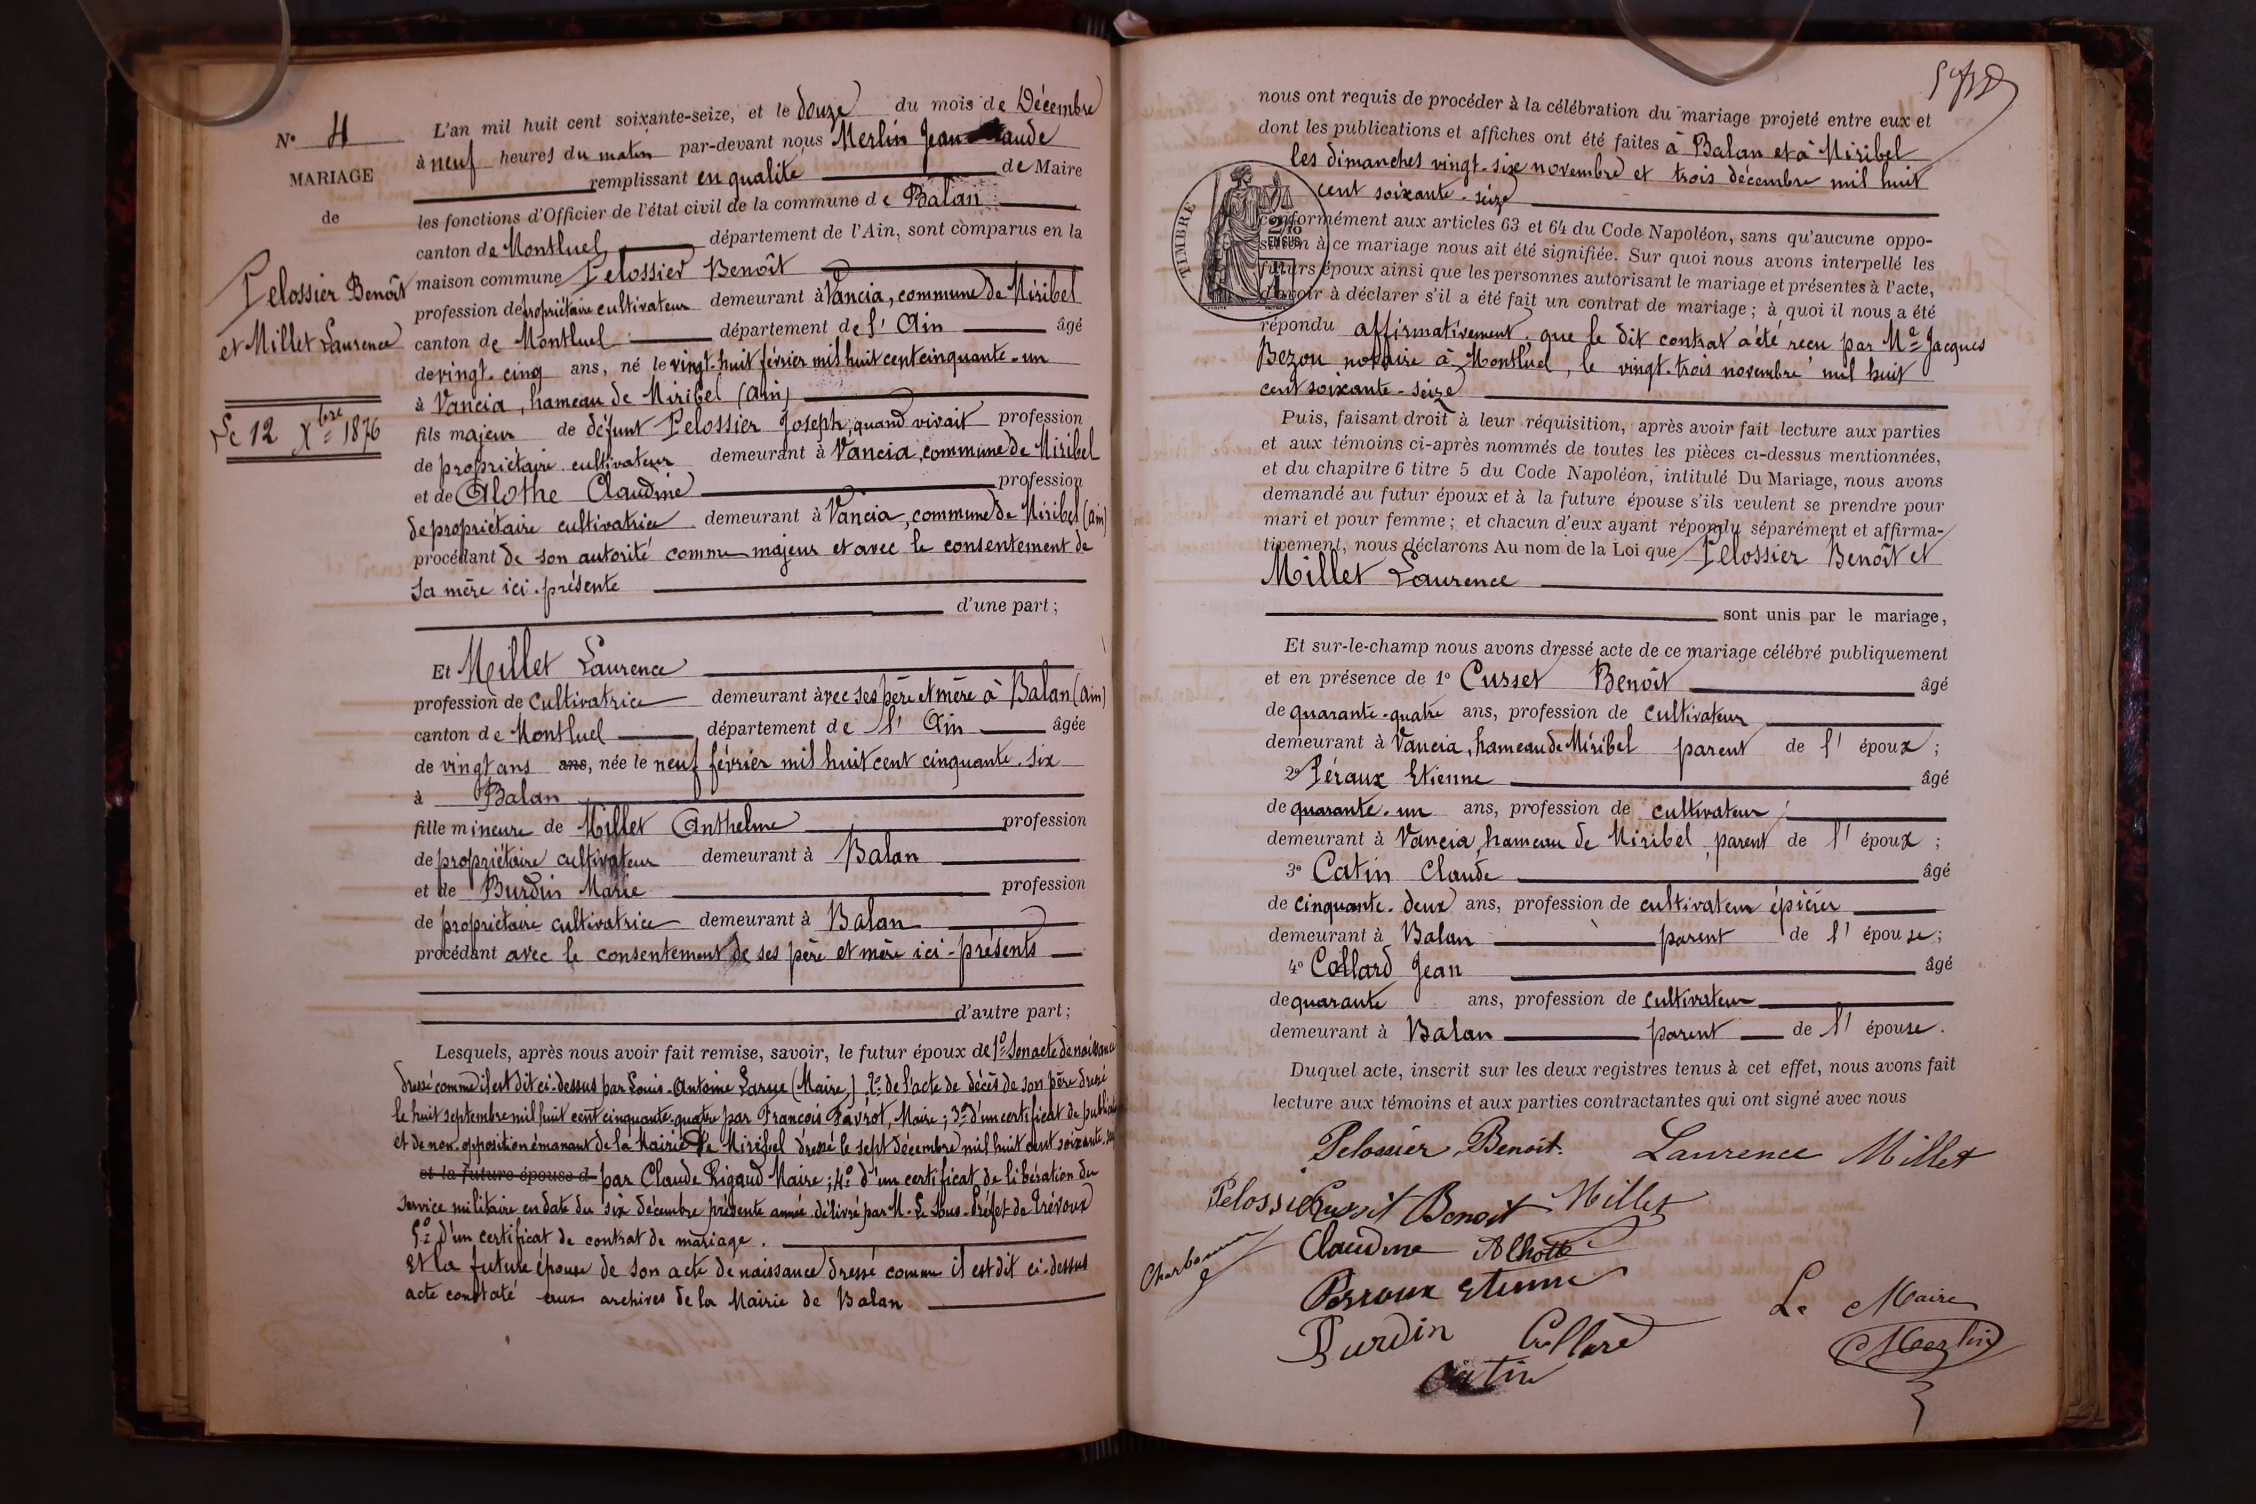 N° 4
MARIAGE
de
Pelossier Benoît
et Millet Laurence
Le 12 Xbre 1876
L'an mil huit cent soixante-seize, et le douze du mois de Décembre
à neuf heures du matin par-devant nous Merlin Jean Claude
remplissant en qualité de Maire
les fonctions d'Officier de l'état civil de la commune de Balan
canton de Montluel département de l'Ain, sont comparus en la
maison commune Pelossier Benoît
profession de propriétaire cultivateur demeurant à Vancia, commune de Miribel
canton de Montluel département de l'Ain âgé
de vingt-cinq ans, né le vingt-huit février mil huit cent cinquante-un
à Vancia, hameau de Miribel (Ain)
fils majeur de défunt Pelossier Joseph, quand vivait profession
de propriétaire cultivateur demeurant à Vancia, commune de Miribel
et de Alothe Claudine profession
de propriétaire cultivatrice demeurant à Vancia, commune de Miribel (Ain)
procédant de son autorité comme majeur et avec le consentement de
sa mère ici-présente
d'une part;
Et Millet Laurence
profession de cultivatrice demeurant avec ses père et mère à Balan (Ain)
canton de Montluel département de l'Ain âgée
de vingt ans ans, née le neuf février mil huit cent cinquante-six
à Balan
fille mineure de Millet Anthelme profession
de propriétaire cultivateur demeurant à Balan
et de Burdin Marie profession
de propriétaire cultivatrice demeurant à Balan
procédant avec le consentement de ses père et mère ici-présents
d'autre part;
Lesquels, après nous avoir fait remise, savoir, le futur époux de 1° son acte de naissance
dressé comme il est dit ci-dessus par Louis-Antoine (Maire) 2° de l'acte de décès de son père dressé
le huit septembre mil huit cent cinquante-quatre par François Favrot, Maire; 3° d'un certificat de
et de non-opposition émanant de la Mairie de Miribel dressé le sept décembre mil huit cent soixante-
et la future épouse d par Claude Rigaud Maire; 4° d'un certificat de libération du
service militaire en date du six décembre présente année délivré par M. Le Sous-Préfet de Trévoux
5° d'un certificat de contrat de mariage.
Et la future épouse de son acte de naissance dressé comme il est dit ci-dessus
acte constaté aux archives de la Mairie de Balan
nous ont requis de procéder à la célébration du mariage projeté entre eux et
dont les publications et affiches ont été faites à Balan et à Miribel
les dimanches vingt-six novembre et trois décembre mil huit
cent soixante-seize
TIMBRE
2/10
EN SUS
conformément aux articles 63 et 64 du Code Napoléon, sans qu'aucune oppo-
sition à ce mariage nous ait été signifiée. Sur quoi nous avons interpellé les
futurs époux ainsi que les personnes autorisant le mariage et présentes à l'acte,
d'avoir à déclarer s'il a été fait un contrat de mariage; à quoi il nous a été
répondu affirmativement, que le dit contrat a été reçu par Me Jacques
Bezou notaire à Montluel, le vingt-trois novembre mil huit
cent soixante-seize
Puis, faisant droit à leur réquisition, après avoir fait lecture aux parties
et aux témoins ci-après nommés de toutes les pièces ci-dessus mentionnées,
et du chapitre 6 titre 5 du Code Napoléon, intitulé Du Mariage, nous avons
demandé au futur époux et à la future épouse s'ils veulent se prendre pour
mari et pour femme; et chacun d'eux ayant répondu séparément et affirma-
tivement, nous déclarons Au nom de la Loi que Pelossier Benoît et
Millet Laurence
sont unis par le mariage,
Et sur-le-champ nous avons dressé acte de ce mariage célébré publiquement
et en présence de 1° Cusset Benoît âgé
de quarante-quatre ans, profession de cultivateur
demeurant à Vancia, hameau de Miribel parent de l'époux;
2° Péraux Etienne âgé
de quarante-un ans, profession de cultivateur
demeurant à Vancia, hameau de Miribel, parent de l'époux;
3° Catin Claude âgé
de cinquante-deux ans, profession de cultivateur épicier
demeurant à Balan parent de l'épouse;
4° Collard Jean âgé
de quarante ans, profession de cultivateur
demeurant à Balan parent de l'épouse.
Duquel acte, inscrit sur les deux registres tenus à cet effet, nous avons fait
lecture aux témoins et aux parties contractantes qui ont signé avec nous
Pelossier Benoît. Laurence Millet
Pelossier Cusset Benoit Millet
Claudine Alhotte
Perroux Etienne
Le Maire
Burdin Collard Merlin
Catin